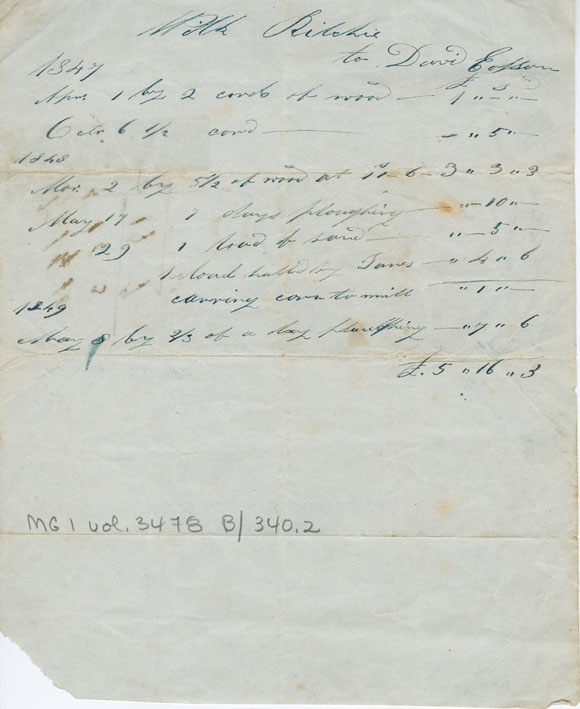 Ritchie
to David Esson
1847 £ s d
Apr. 1 by 2 cords of wood — 1 " — " —
Octr 6 1/2 cord — — " 5 " —
1848
Mar. 2 by 5 1/2 of wood at 11 s 6 — 3 " 3 " 3
May 17 1 days ploughing — " — 10 " —
" 29 1 load of sand — " — 5 " —
" " 1 load halld by — " 4 " 6
carring corn to mill " 1 " —
1849
May 8 by 2/3 of a day plaughing — " 7 " 6
£. 5 " 16 " 3
MG 1 vol. 3478 B/340.2